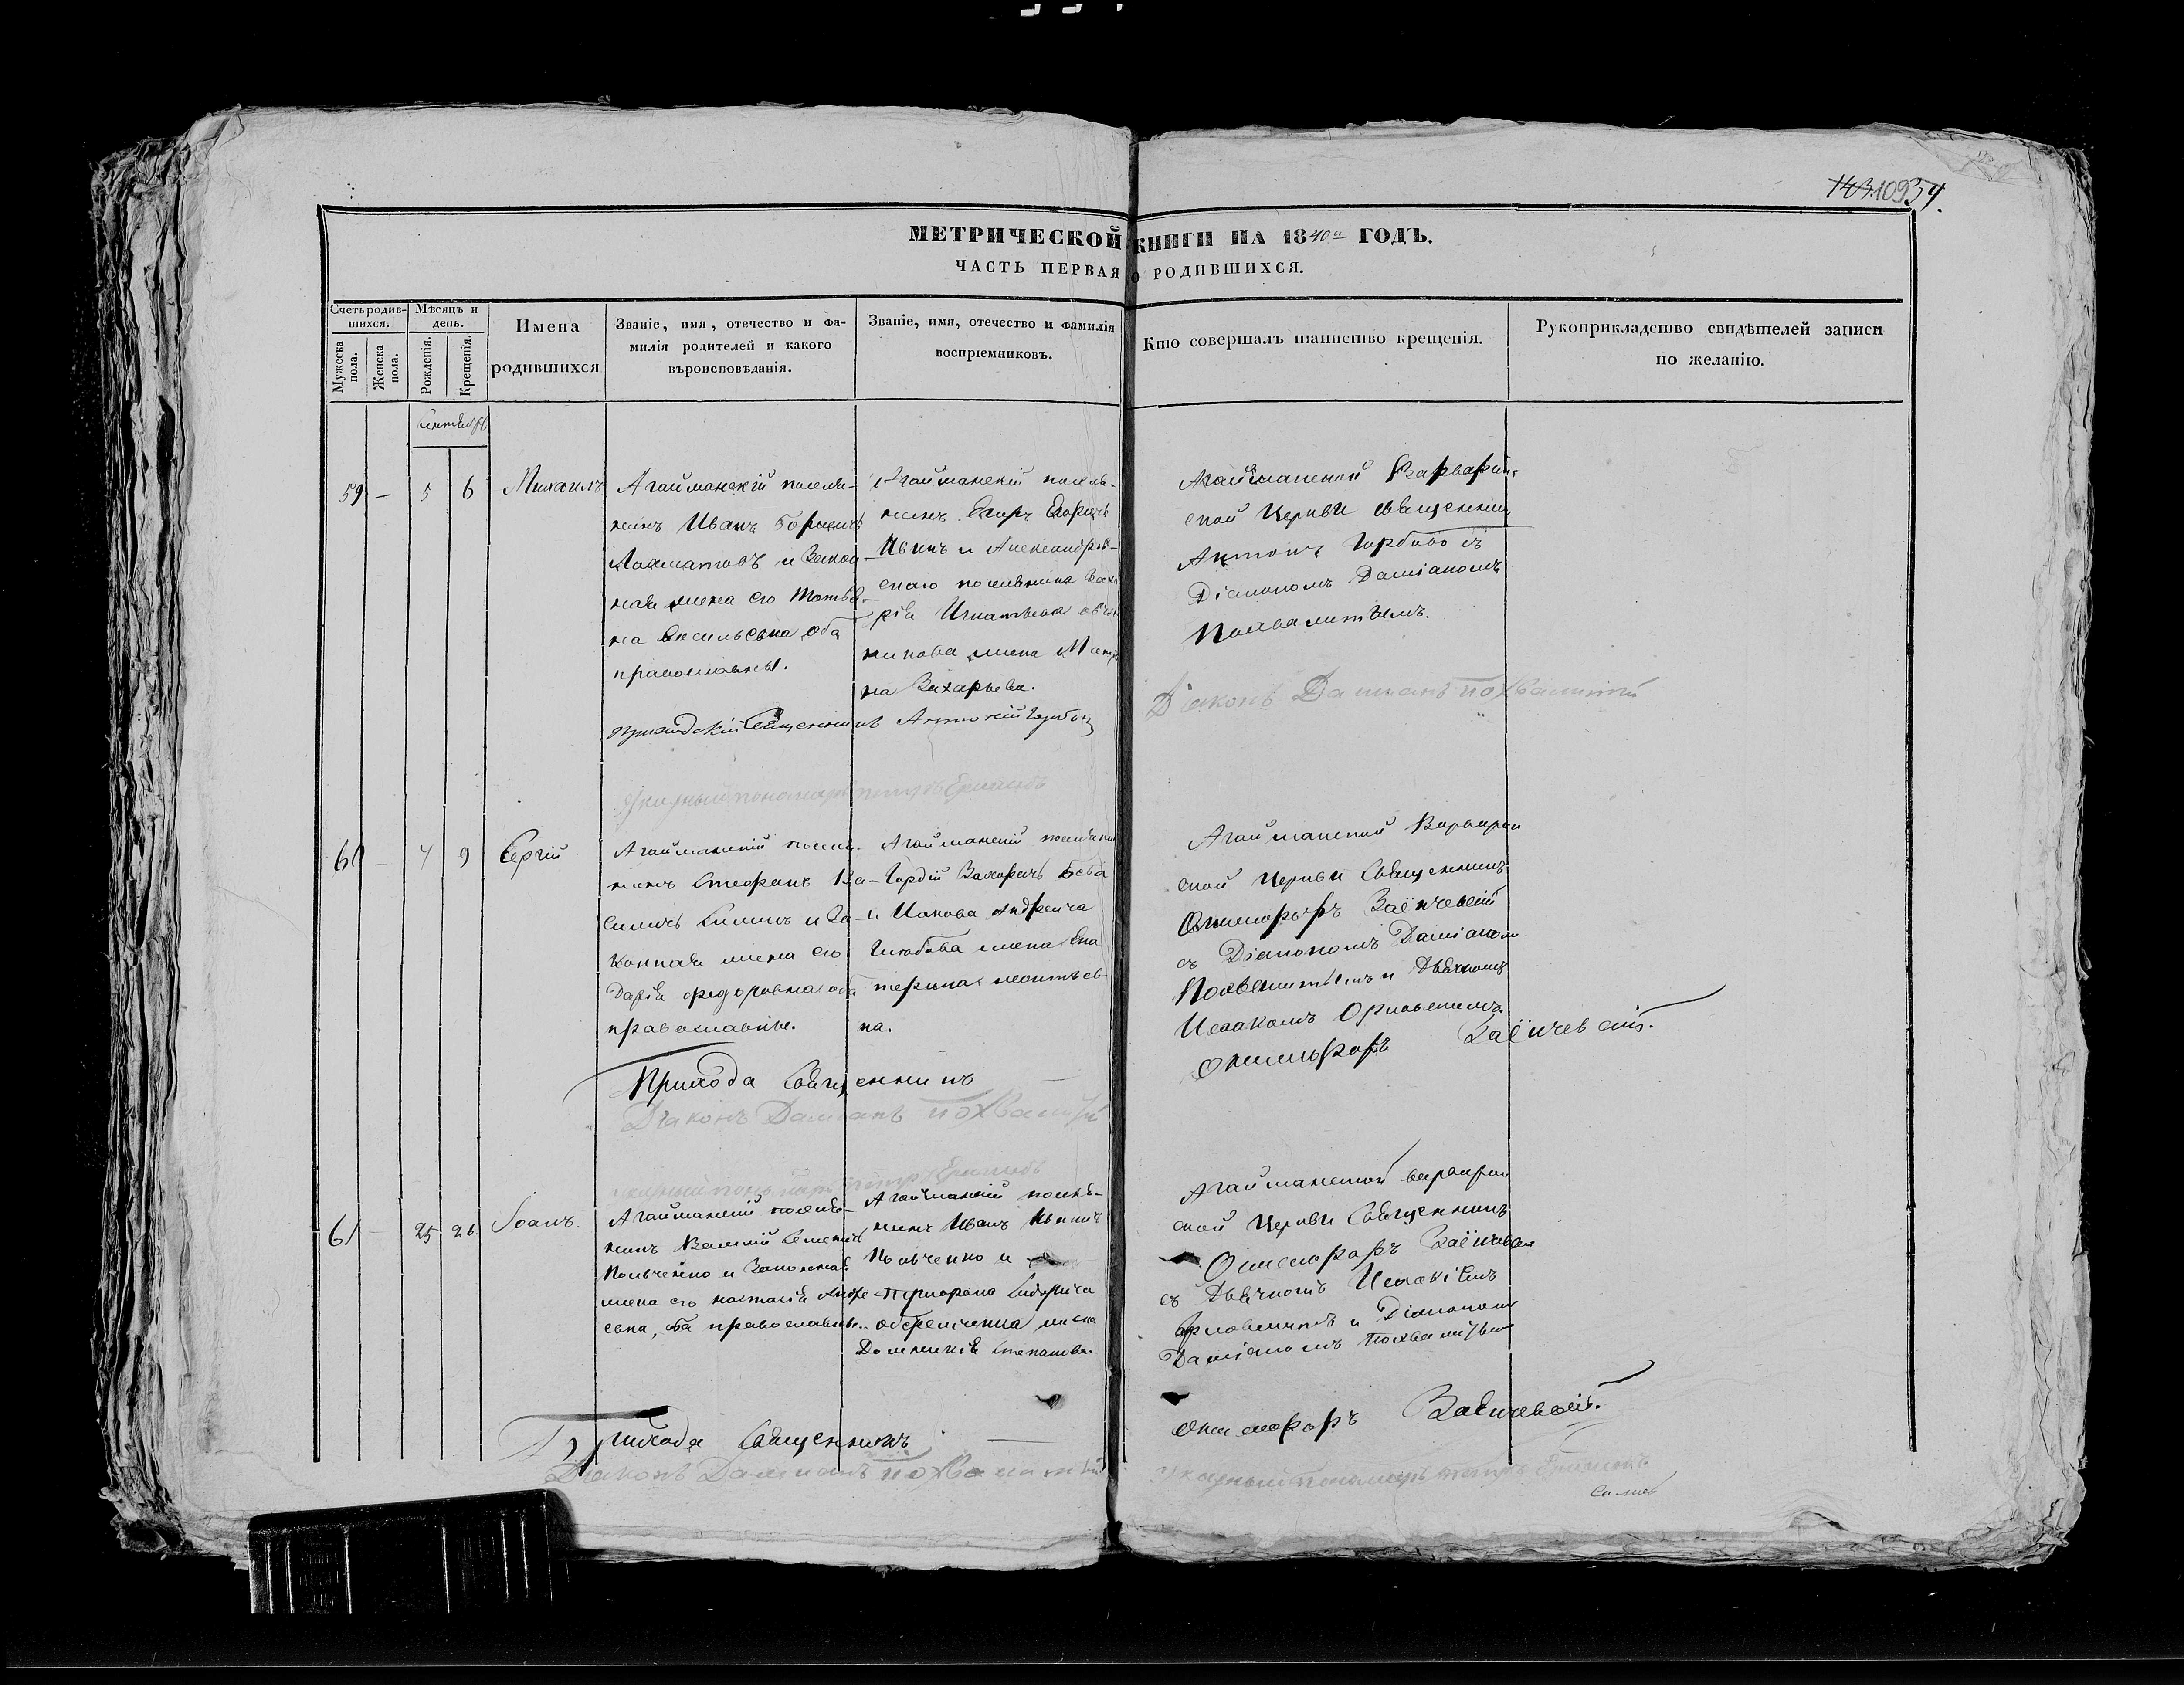 1093 59.
МЕТРИЧЕСКОЙ КНИГИ НА 1840й ГОДЪ.
ЧАСТЬ ПЕРВАЯ О РОДИВШИХСЯ.
Счетъ родившихся.
Мужеска пола.
Женска пола.
Мѣсяцъ и день.
Рожденія.
Крещенія.
Имена родившихся
Званіе, имя, отечество и фа-
милія родителей и какого
вѣроисповѣданія.
Званіе, имя, отечество и фамилія
воспріемниковъ.
Кто совершалъ таинство крещенія.
Рукоприкладство свидѣтелей записи
по желанію.
Сентябрь
59 — 5 6 Михаилъ
Агайманскій поселя-
нинъ Иванъ
и Закон-
ная жена его Татья-
на Васильевна, оба
православны.
Агайманскій поселя-
нинъ Егоръ
и Александров-
скаго поселянина Заха-
рія Игнатьева
жена
на Захарьева.
Агайманской Варварин-
ской Церкви священник
Антоній Горбово съ
Діакономъ Даміаномъ
Похвалитымъ.
Приходскій Священникъ Антоній
Діаконъ Даміанъ Похвалитый
Указный пономарь Петръ
60 — 7 9 Сергій
Агайманскій поселя-
нинъ Стефанъ Ва-
сильевъ и За-
конная жена его
Дарія Федоровна оба
православные.
Агайманскій поселянин
Гордій Захаричъ
и Иакова Андреича
жена Ека
терина
на.
Агайманской Варварин
ской Церкви Священникъ
Онисифоръ Заіончевскій
съ Діакономъ Даміаном
Похвалитымъ и Дьячкомъ
Исаакомъ Орловскимъ
Онисифоръ Заіончевскій.
Прихода Священникъ
Діаконъ Даміанъ Похвалитый
Указный пономарь Петръ
61 — 25 26 Іоанъ.
Агайманскій поселя-
нинъ Василій Семенов
и Законная
жена его Настасія Андре-
евна, оба православные.
Агайманскій поселя-
нинъ Иванъ
и
жена
Домникія Степанова.
Агайманской Варварин
ской Церкви Священникъ
Онисифоръ Заіончевски
съ Дьячкомъ Исаакіемъ
Орловскимъ и Діакономъ
Даміаномъ Похвалитым
Онисифоръ Заіончевскій.
Прихода Священникъ
Діаконъ Даміанъ Похвалитый
Указный пономарь Петръ